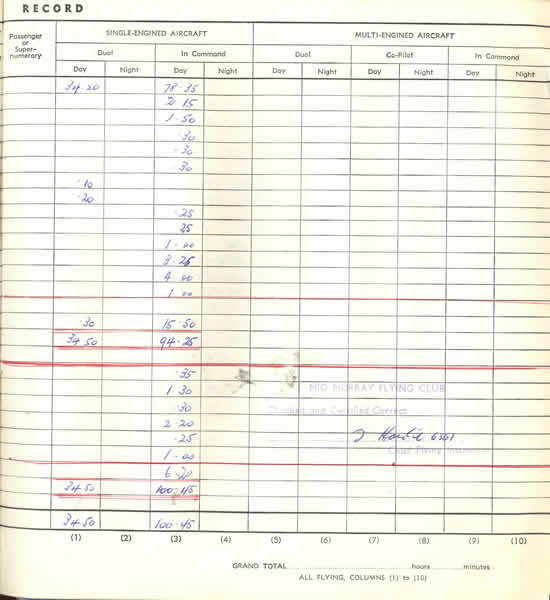 RECORD
Passenger or Super-numerary SINGLE-ENGINED AIRCRAFT MULTI-ENGINED AIRCRAFT
Dual In Command Dual Co-Pilot In Command
Day Night Day Night Day Night Day Night Day Night
34.20 78.35
2.15
1.50
.30
.30
.30
.10
.20
.25
25
1.00
3.25
4.00
1.00
.30 15.50
34.50 94.25
.35
1.30 MID MURRAY FLYING CLUB
.30 and Certified Correct
2.20
.25 6361
1.00 Chief Flying Instructor
6.20
34.50 100.45
34.50 100.45
(1) (2) (3) (4) (5) (6) (7) (8) (9) (10)
GRAND TOTAL hours minutes
ALL FLYING, COLUMNS (1) to (10)